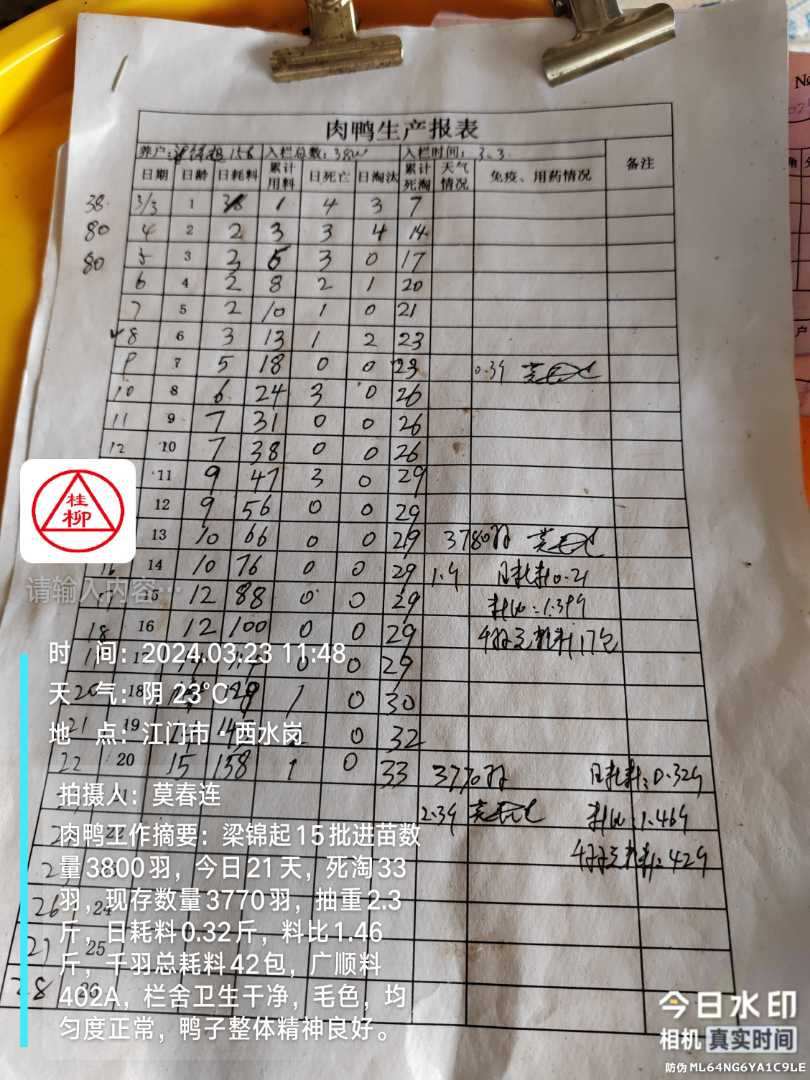 肉鸭生产报表
养户: 156 入栏总数: 3800 入栏时间: 3.3 备注
日期 日龄 日耗料 累计用料 日死亡 日淘汰 累计死淘 天气情况 免疫、用药情况
38 3/3 1 1 4 3 7
80 4 2 2 3 3 4 14
80 5 3 2 5 3 0 17
6 4 2 8 2 1 20
7 5 2 10 1 0 21
8 6 3 13 1 2 23
9 7 5 18 0 0 23 0.39
10 8 6 24 3 0 26
11 9 7 31 0 0 26
12 10 7 38 0 0 26
11 9 47 3 0 29
12 9 56 0 0 29
13 10 66 0 0 29 3780羽
16 14 10 76 0 0 29 1.9 日耗料0.21
15 12 88 0 0 29 料比:1.399
18 16 12 100 0 0 29 千羽总耗料17包
17 0 0 29
20 18 1 0 30
21 19 0 32
22 20 15 158 1 0 33 3770羽 日耗料:0.329
2.39 料比:1.469
千羽总耗料:429
26 24
25
28
桂柳
请输入内容…
时 间:2024.03.23 11:48
天 气:阴 23℃
地 点:江门市·西水岗
拍摄人:莫春连
肉鸭工作摘要:梁锦起15批进苗数
量3800羽,今日21天,死淘33
羽,现存数量3770羽,抽重2.3
斤,日耗料0.32斤,料比1.46
斤,千羽总耗料42包,广顺料
402A,栏舍卫生干净,毛色,均
匀度正常,鸭子整体精神良好。
今日水印
相机 真实时间
防伪 ML64NG6YA1C9LE